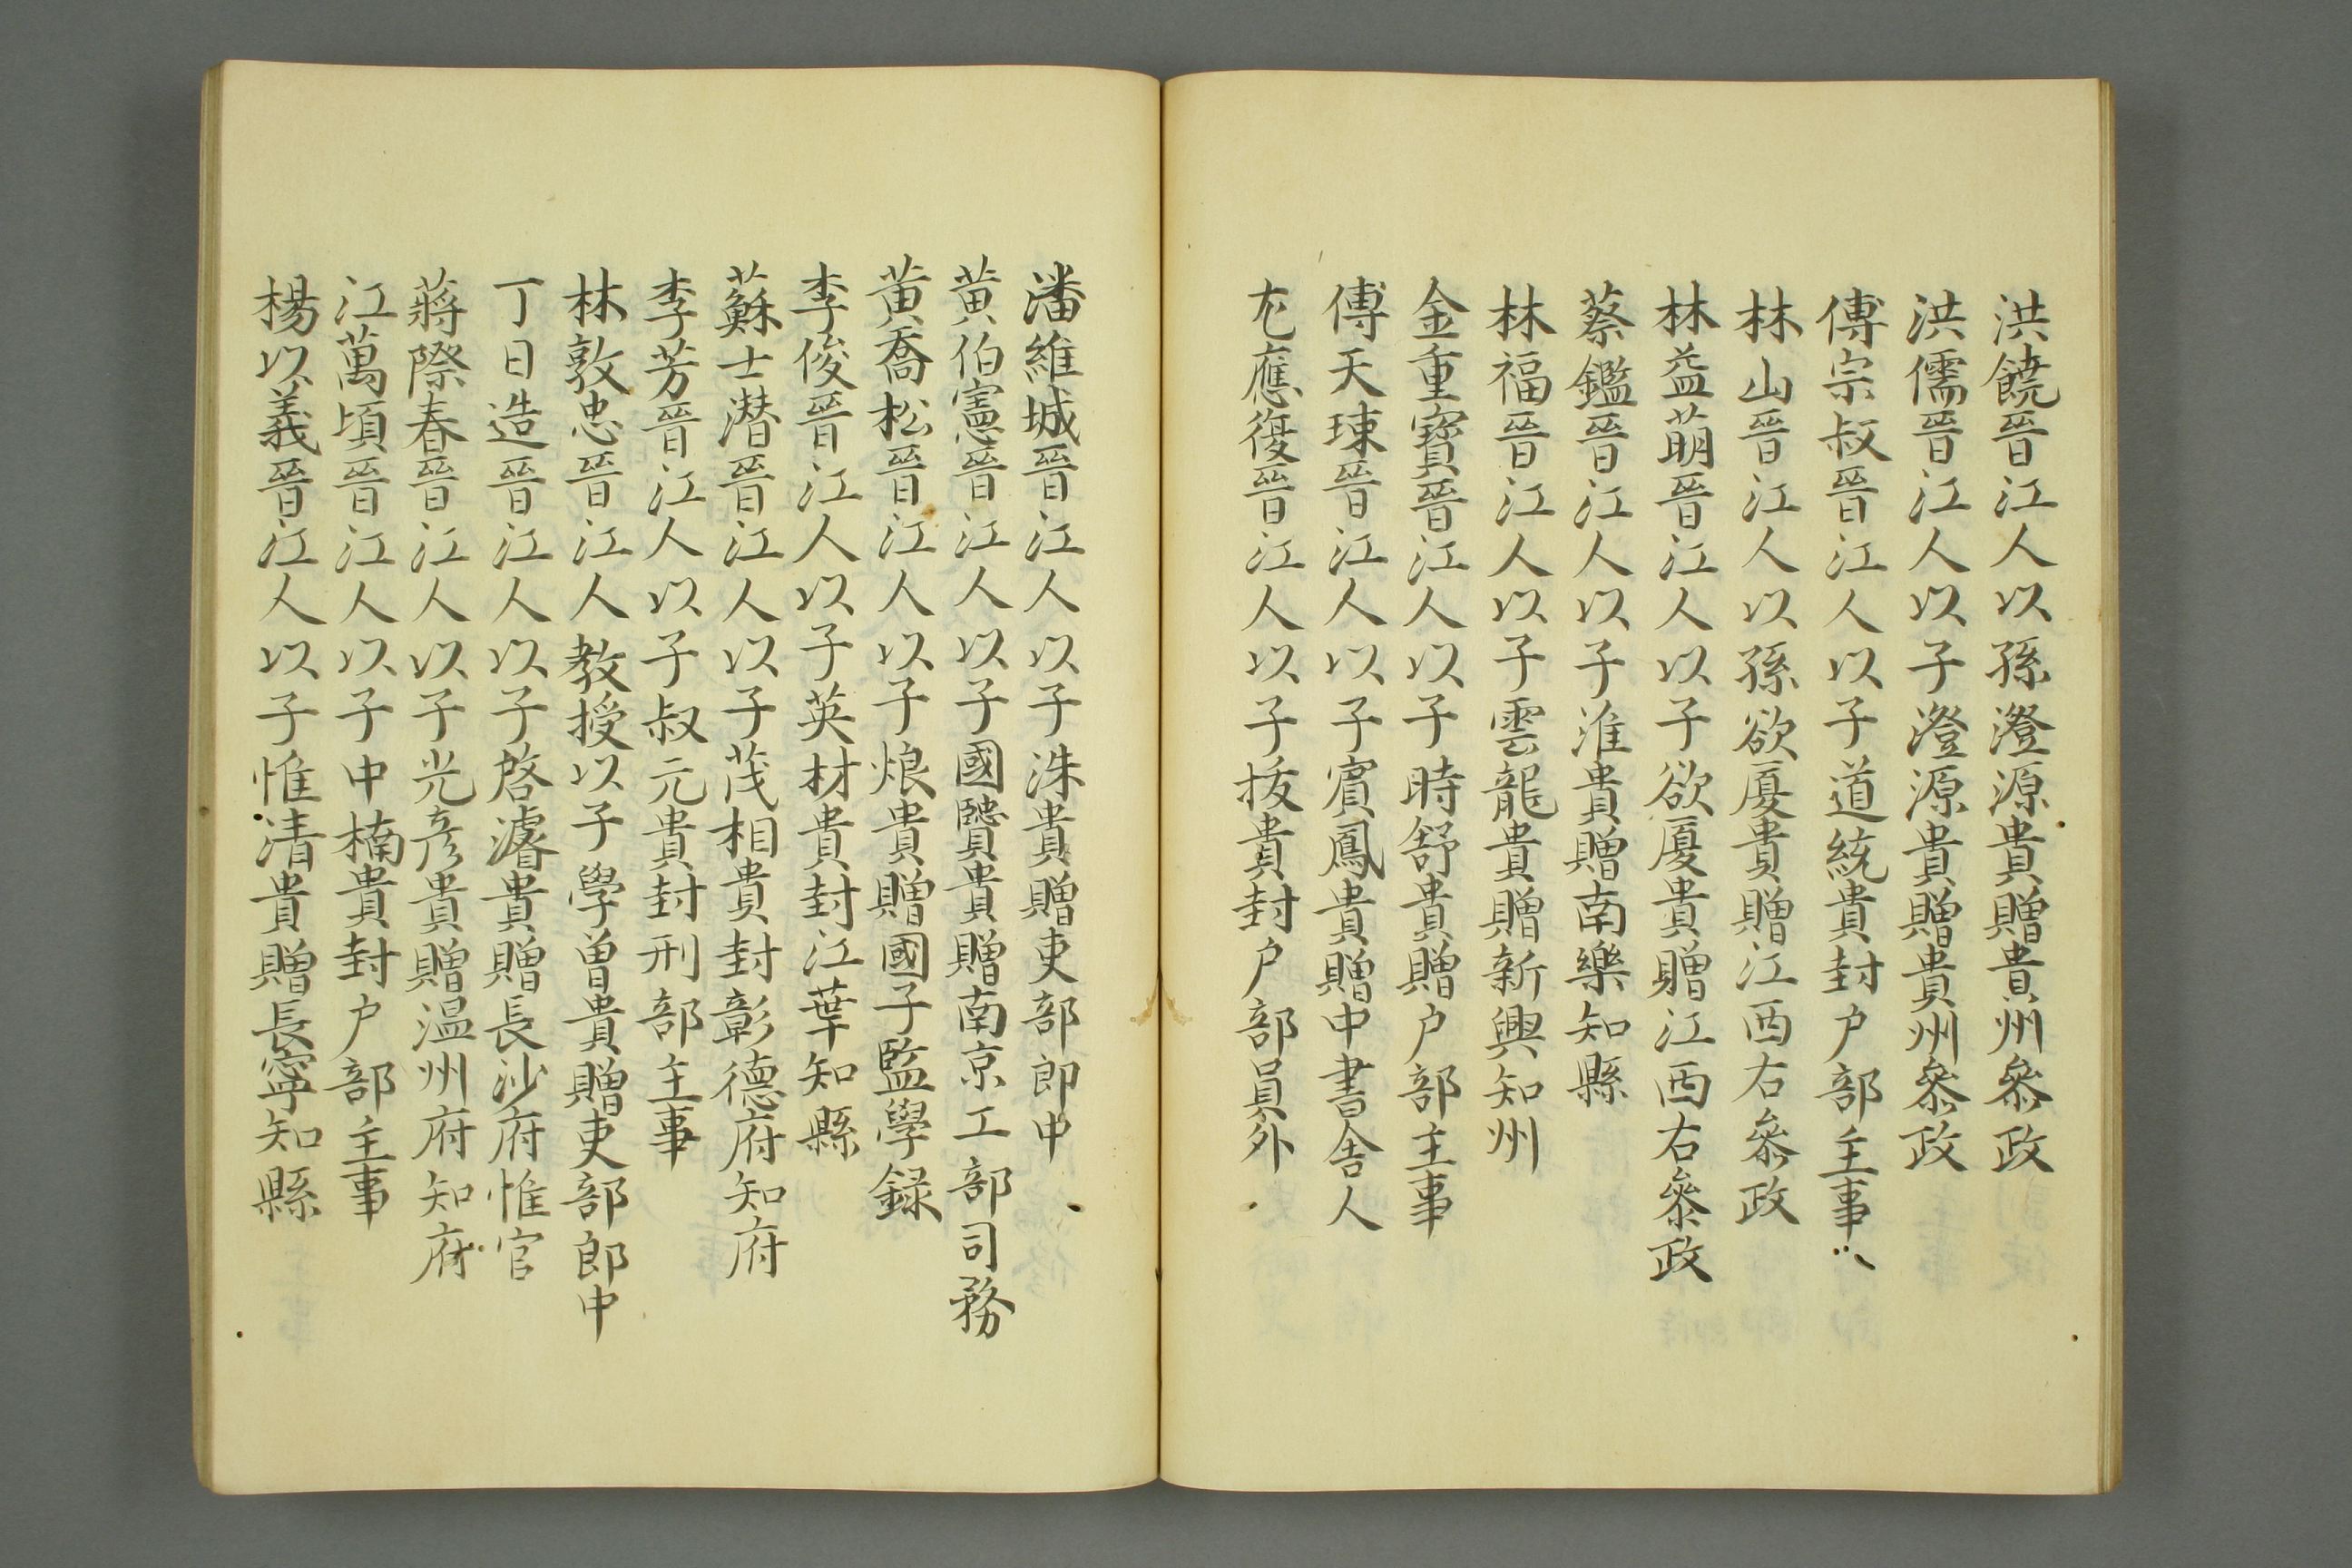 洪饒晉江人以孫澄源貴贈貴州參政
洪儒晉江人以子澄源貴贈貴州參政
傅宗叔晉江人以子道統貴封户部主事
林山晉江人以孫欲厦貴贈江西右參政
林益萌晉江人以子欲厦貴贈江西右參政
蔡鑑晉江人以子淮貴贈南樂知縣
林福晉江人以子雲龍貴贈新興知州
金重寳晉江人以子時舒貴贈户部主事
傅天㻋晉江人以子賓鳳貴贈中書舍人
應復晉江人以子拔貴封户部員外
潘維城晉江人以子洙貴贈吏部郎中
黄伯憲晉江人以子國貴贈南京工部司務
黄喬松晉江人以子烺貴贈國子監學録
李俊晉江人以子英材貴封江華知縣
蘇士潜晉江人以子茂相貴封彰德府知府
李芳晉江人以子叔元貴封刑部主事
林敦忠晉江人教授以子學曾貴贈吏部郎中
丁日造晉江人以子啓濬貴贈長沙府惟官
蔣際春晉江人以子光彦貴贈温州府知府
江萬頃晉江人以子中楠貴封户部主事
楊以義晉江人以子惟清貴贈長寧知縣